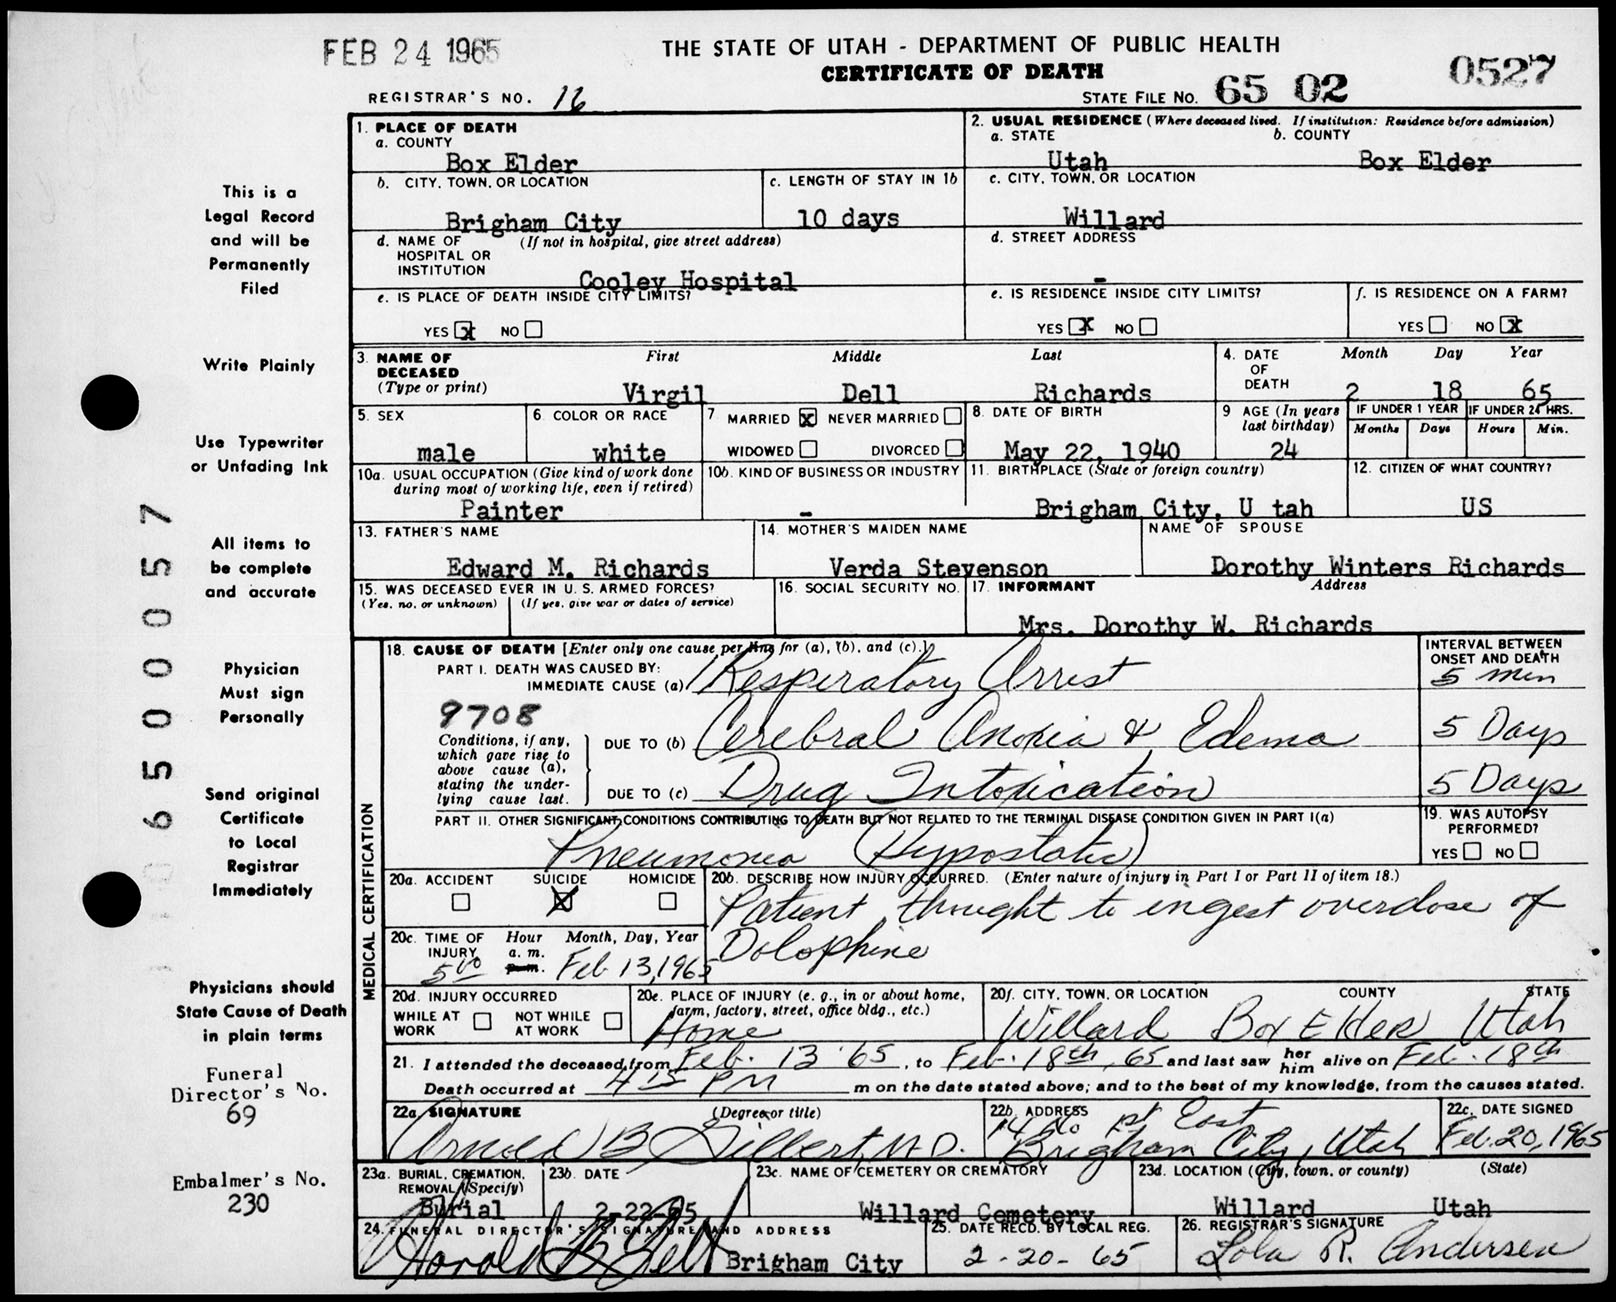 FEB 24 1965
THE STATE OF UTAH - DEPARTMENT OF PUBLIC HEALTH
CERTIFICATE OF DEATH
REGISTRAR'S NO. 16
STATE FILE NO. 65 02 0527
This is a
Legal Record
and will be
Permanently
Filed
Write Plainly
Use Typewriter
or Unfading Ink
All items to
be complete
and accurate
Physician
Must sign
Personally
Send original
Certificate
to Local
Registrar
Immediately
Physicians should
State Cause of Death
in plain terms
Funeral
Director's No.
69
Embalmer's No.
230
6500057
1. PLACE OF DEATH
a. COUNTY
Box Elder
2. USUAL RESIDENCE (Where deceased lived. If institution: Residence before admission)
a. STATE b. COUNTY
Utah Box Elder
b. CITY, TOWN, OR LOCATION
Brigham City
c. LENGTH OF STAY IN 1b
10 days
c. CITY, TOWN, OR LOCATION
Willard
d. NAME OF (If not in hospital, give street address)
HOSPITAL OR
INSTITUTION
Cooley Hospital
d. STREET ADDRESS
-
e. IS PLACE OF DEATH INSIDE CITY LIMITS?
YES x NO
e. IS RESIDENCE INSIDE CITY LIMITS?
YES x NO
f. IS RESIDENCE ON A FARM?
YES NO x
3. NAME OF DECEASED (Type or print)
First Middle Last
Virgil Dell Richards
4. DATE OF DEATH
Month Day Year
2 18 65
5. SEX
male
6. COLOR OR RACE
white
7 MARRIED x NEVER MARRIED
WIDOWED DIVORCED
8. DATE OF BIRTH
May 22, 1940
9 AGE (In years last birthday)
24
IF UNDER 1 YEAR IF UNDER 24 HRS.
Months Days Hours Min.
10a. USUAL OCCUPATION (Give kind of work done
during most of working life, even if retired)
Painter
10b. KIND OF BUSINESS OR INDUSTRY
-
11. BIRTHPLACE (State or foreign country)
Brigham City, U tah
12. CITIZEN OF WHAT COUNTRY?
US
13. FATHER'S NAME
Edward M. Richards
14. MOTHER'S MAIDEN NAME
Verda Stevenson
NAME OF SPOUSE
Dorothy Winters Richards
15. WAS DECEASED EVER IN U. S. ARMED FORCES?
(Yes, no, or unknown) (If yes, give war or dates of service)
16. SOCIAL SECURITY NO.
17. INFORMANT Address
Mrs. Dorothy W. Richards
MEDICAL CERTIFICATION
18. CAUSE OF DEATH [Enter only one cause per line for (a), (b), and (c).]
INTERVAL BETWEEN
ONSET AND DEATH
PART I. DEATH WAS CAUSED BY:
IMMEDIATE CAUSE (a) Respiratory Arrest 5 min
9708
Conditions, if any,
which gave rise to
above cause (a),
stating the under-
lying cause last.
DUE TO (b) Cerebral Anoxia & Edema 5 Days
DUE TO (c) Drug Intoxication 5 Days
PART II. OTHER SIGNIFICANT CONDITIONS CONTRIBUTING TO DEATH BUT NOT RELATED TO THE TERMINAL DISEASE CONDITION GIVEN IN PART I(a)
Pneumonia (Hypostatic)
19. WAS AUTOPSY
PERFORMED?
YES NO
20a. ACCIDENT SUICIDE HOMICIDE
X
20b. DESCRIBE HOW INJURY OCCURRED. (Enter nature of injury in Part I or Part II of item 18.)
Patient thought to ingest overdose of
Dolophine
20c. TIME OF INJURY
Hour Month, Day, Year
a. m.
p. m.
5 00 Feb 13, 1965
20d. INJURY OCCURRED
WHILE AT WORK NOT WHILE AT WORK
20e. PLACE OF INJURY (e. g., in or about home,
farm, factory, street, office bldg., etc.)
Home
20f. CITY, TOWN, OR LOCATION COUNTY STATE
Willard Box Elder Utah
21. I attended the deceased from Feb. 13 '65, to Feb. 18th, 65 and last saw her him alive on Feb. 18th
Death occurred at 4 15 PM m on the date stated above; and to the best of my knowledge, from the causes stated.
22a. SIGNATURE (Degree or title)
Arnold B Gilbert, M.D.
22b. ADDRESS
1st East
Brigham City, Utah
22c. DATE SIGNED
Feb. 20, 1965
23a. BURIAL, CREMATION,
REMOVAL (Specify)
Burial
23b DATE
2-22-65
23c. NAME OF CEMETERY OR CREMATORY
Willard Cemetery
23d. LOCATION (City, town, or county) (State)
Willard Utah
24. FUNERAL DIRECTOR'S SIGNATURE AND ADDRESS
Harold B Felt Brigham City
25. DATE RECD. BY LOCAL REG.
2-20-65
26. REGISTRAR'S SIGNATURE
Lola R. Andersen